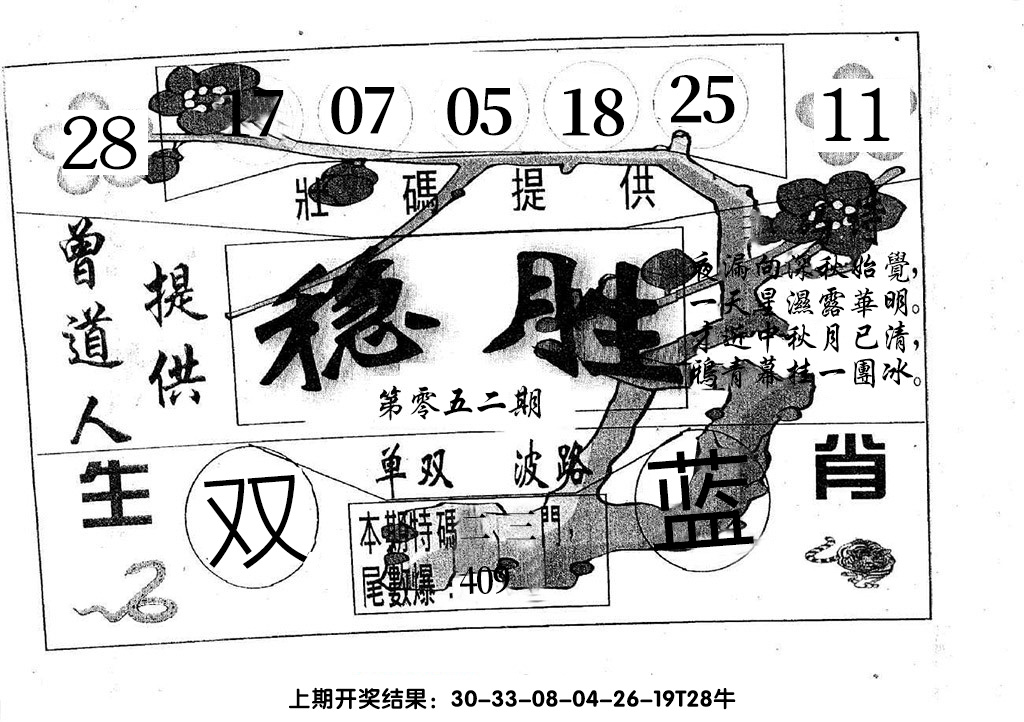 28 17 07 05 18 25 11
壯碼提供
曾道人
提供
稳胜
第零五二期
诗
夜漏向深秋始覺，
一天星濕露華明。
才近中秋月已清，
鴉青幕桂一團冰。
单双 波路
生肖
双
蓝
本期特碼二、三門，
尾數爆：409
上期开奖结果：30-33-08-04-26-19T28牛